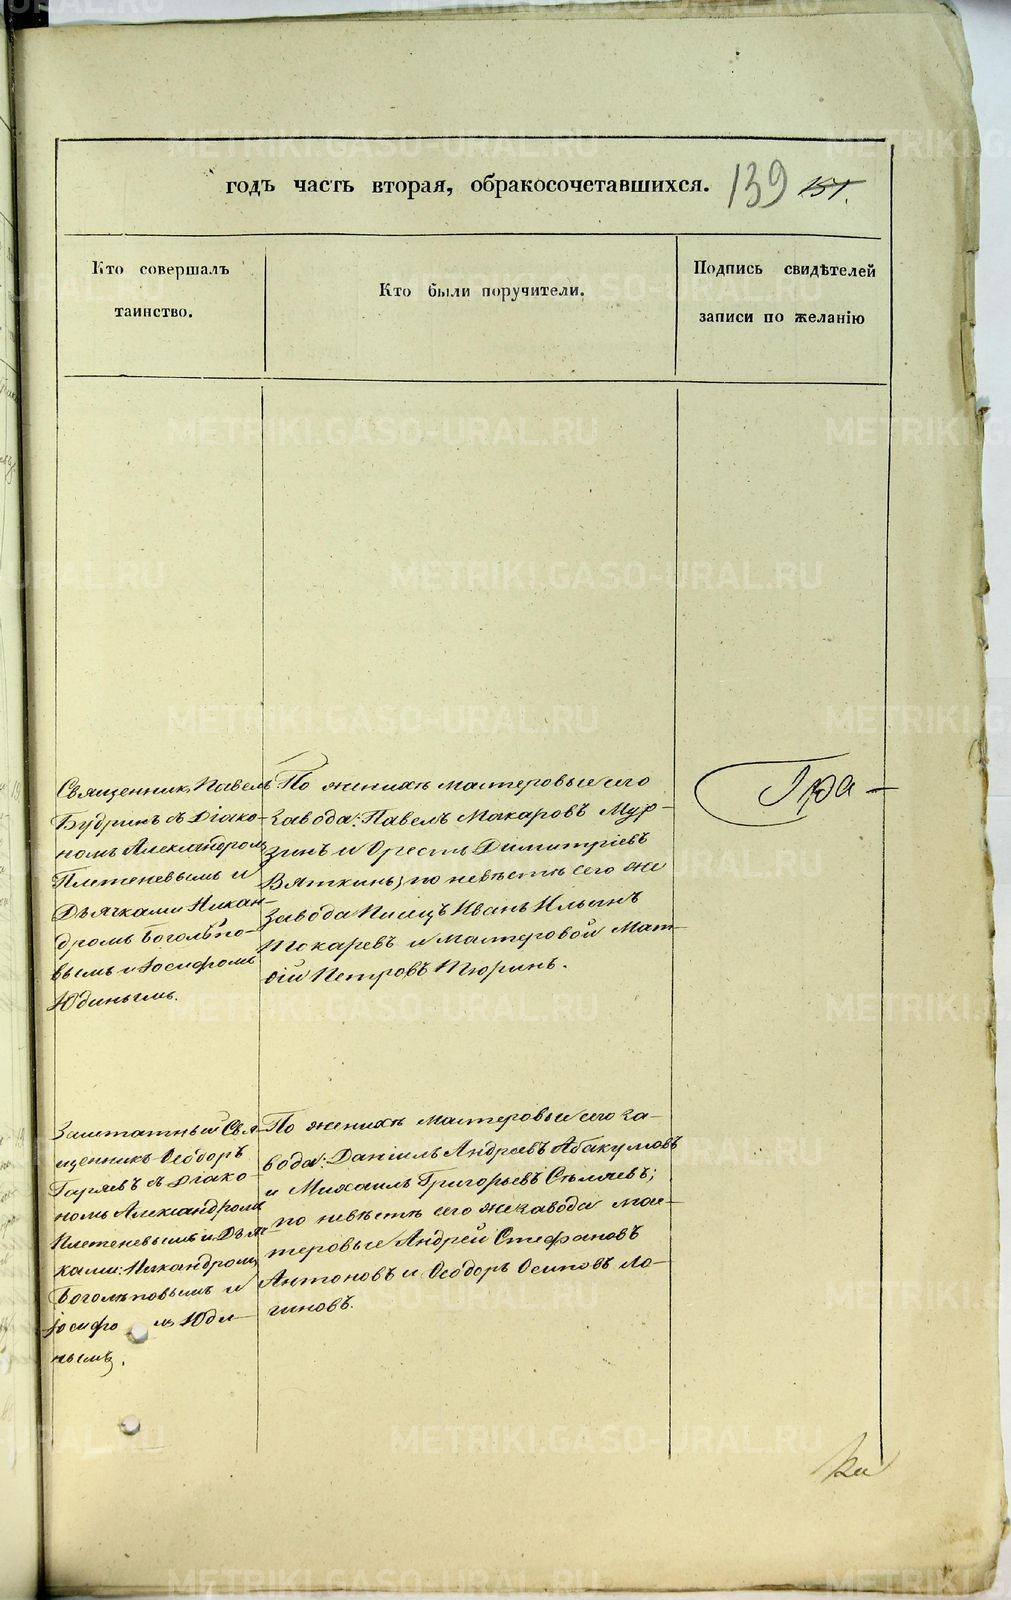 годъ часть вторая, обракосочетавшихся. 139 151.
Кто совершалъ
таинство.
Кто были поручители.
Подпись свидѣтелей
записи по желанію
Священник Павелъ
Будринъ съ Діако-
номъ Александромъ
Плетеневымъ и
Дьячками Никан-
дромъ Боголѣпо-
вымъ и Іосифомъ
Юдинымъ.
По женихѣ мастеровые сего
завода: Павелъ Макаровъ Мур-
зинъ и Орестъ Димитріевъ
Вяткинъ; по невѣстѣ сего же
завода Писецъ Иванъ Ильинъ
Токаревъ и мастеровой Мат-
ѳій Петровъ Тюринъ.
Гра-
Заштатный Свя-
щенникъ Ѳеодоръ
Гаряевъ съ Діако-
номъ Александромъ
Плетеневымъ и Дьяч-
ками: Никандромъ
Боголѣповымъ и
Іосифомъ Юди-
нымъ.
По женихѣ мастеровые сего за-
вода: Даніилъ Андреевъ Абакумовъ
и Михаилъ Григорьевъ
по невѣстѣ сего же завода мас-
теровые Андрей Стефановъ
Антоновъ и Ѳеодоръ Осиповъ Ло-
гиновъ.
METRIKI.GASO-URAL.RU